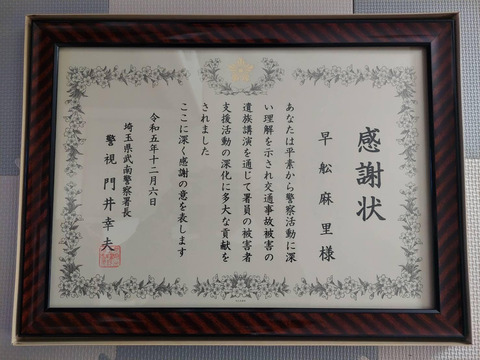 感謝状
早舩麻里様
あなたは平素から警察活動に深
い理解を示され交通事故被害の
遺族講演を通じて署員の被害者
支援活動の深化に多大な貢献を
されました
ここに深く感謝の意を表します
令和五年十二月六日
埼玉県武南警察署長
警視 門井幸夫